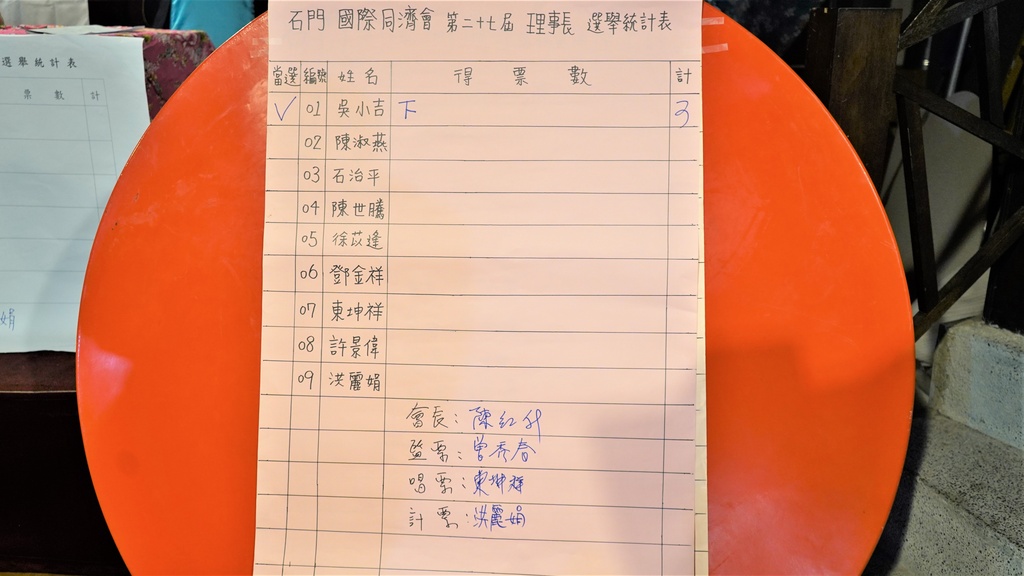 石門 國際同濟會 第二十七屆 理事長 選舉統計表
當選 編號 姓名 得 票 數 計
✓ 01 吳小吉 下 3
02 陳淑燕
03 石治平
04 陳世騰
05 徐苡逢
06 鄧金祥
07 東坤祥
08 許景偉
09 洪麗娟
會長：陳紅升
監票：曾秀春
唱票：東坤祥
計票：洪麗娟
選舉統計表
票 數 計
娟